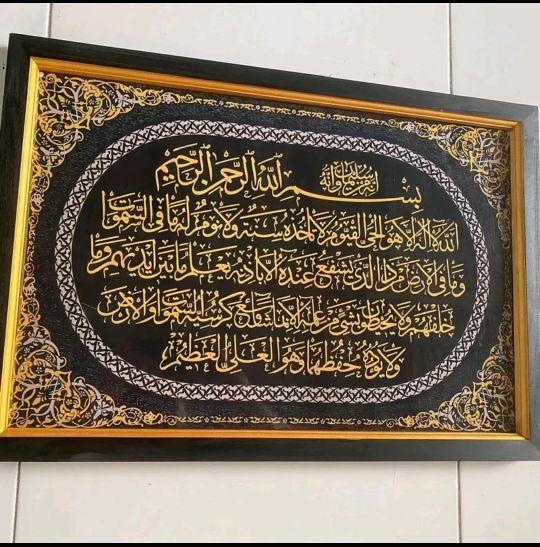 إنه من سليمان وإنه
بسم الله الرحمن الرحيم
الله لا اله الا هو الحي القيوم لا تاخذه سنة ولا نوم له ما في السموات
وما في الارض من ذا الذي يشفع عنده الا باذنه يعلم ما بين ايديهم وما
خلفهم ولا يحيطون بشيء من علمه الا بما شاء وسع كرسيه السموات والارض
ولا يؤده حفظهما وهو العلي العظيم